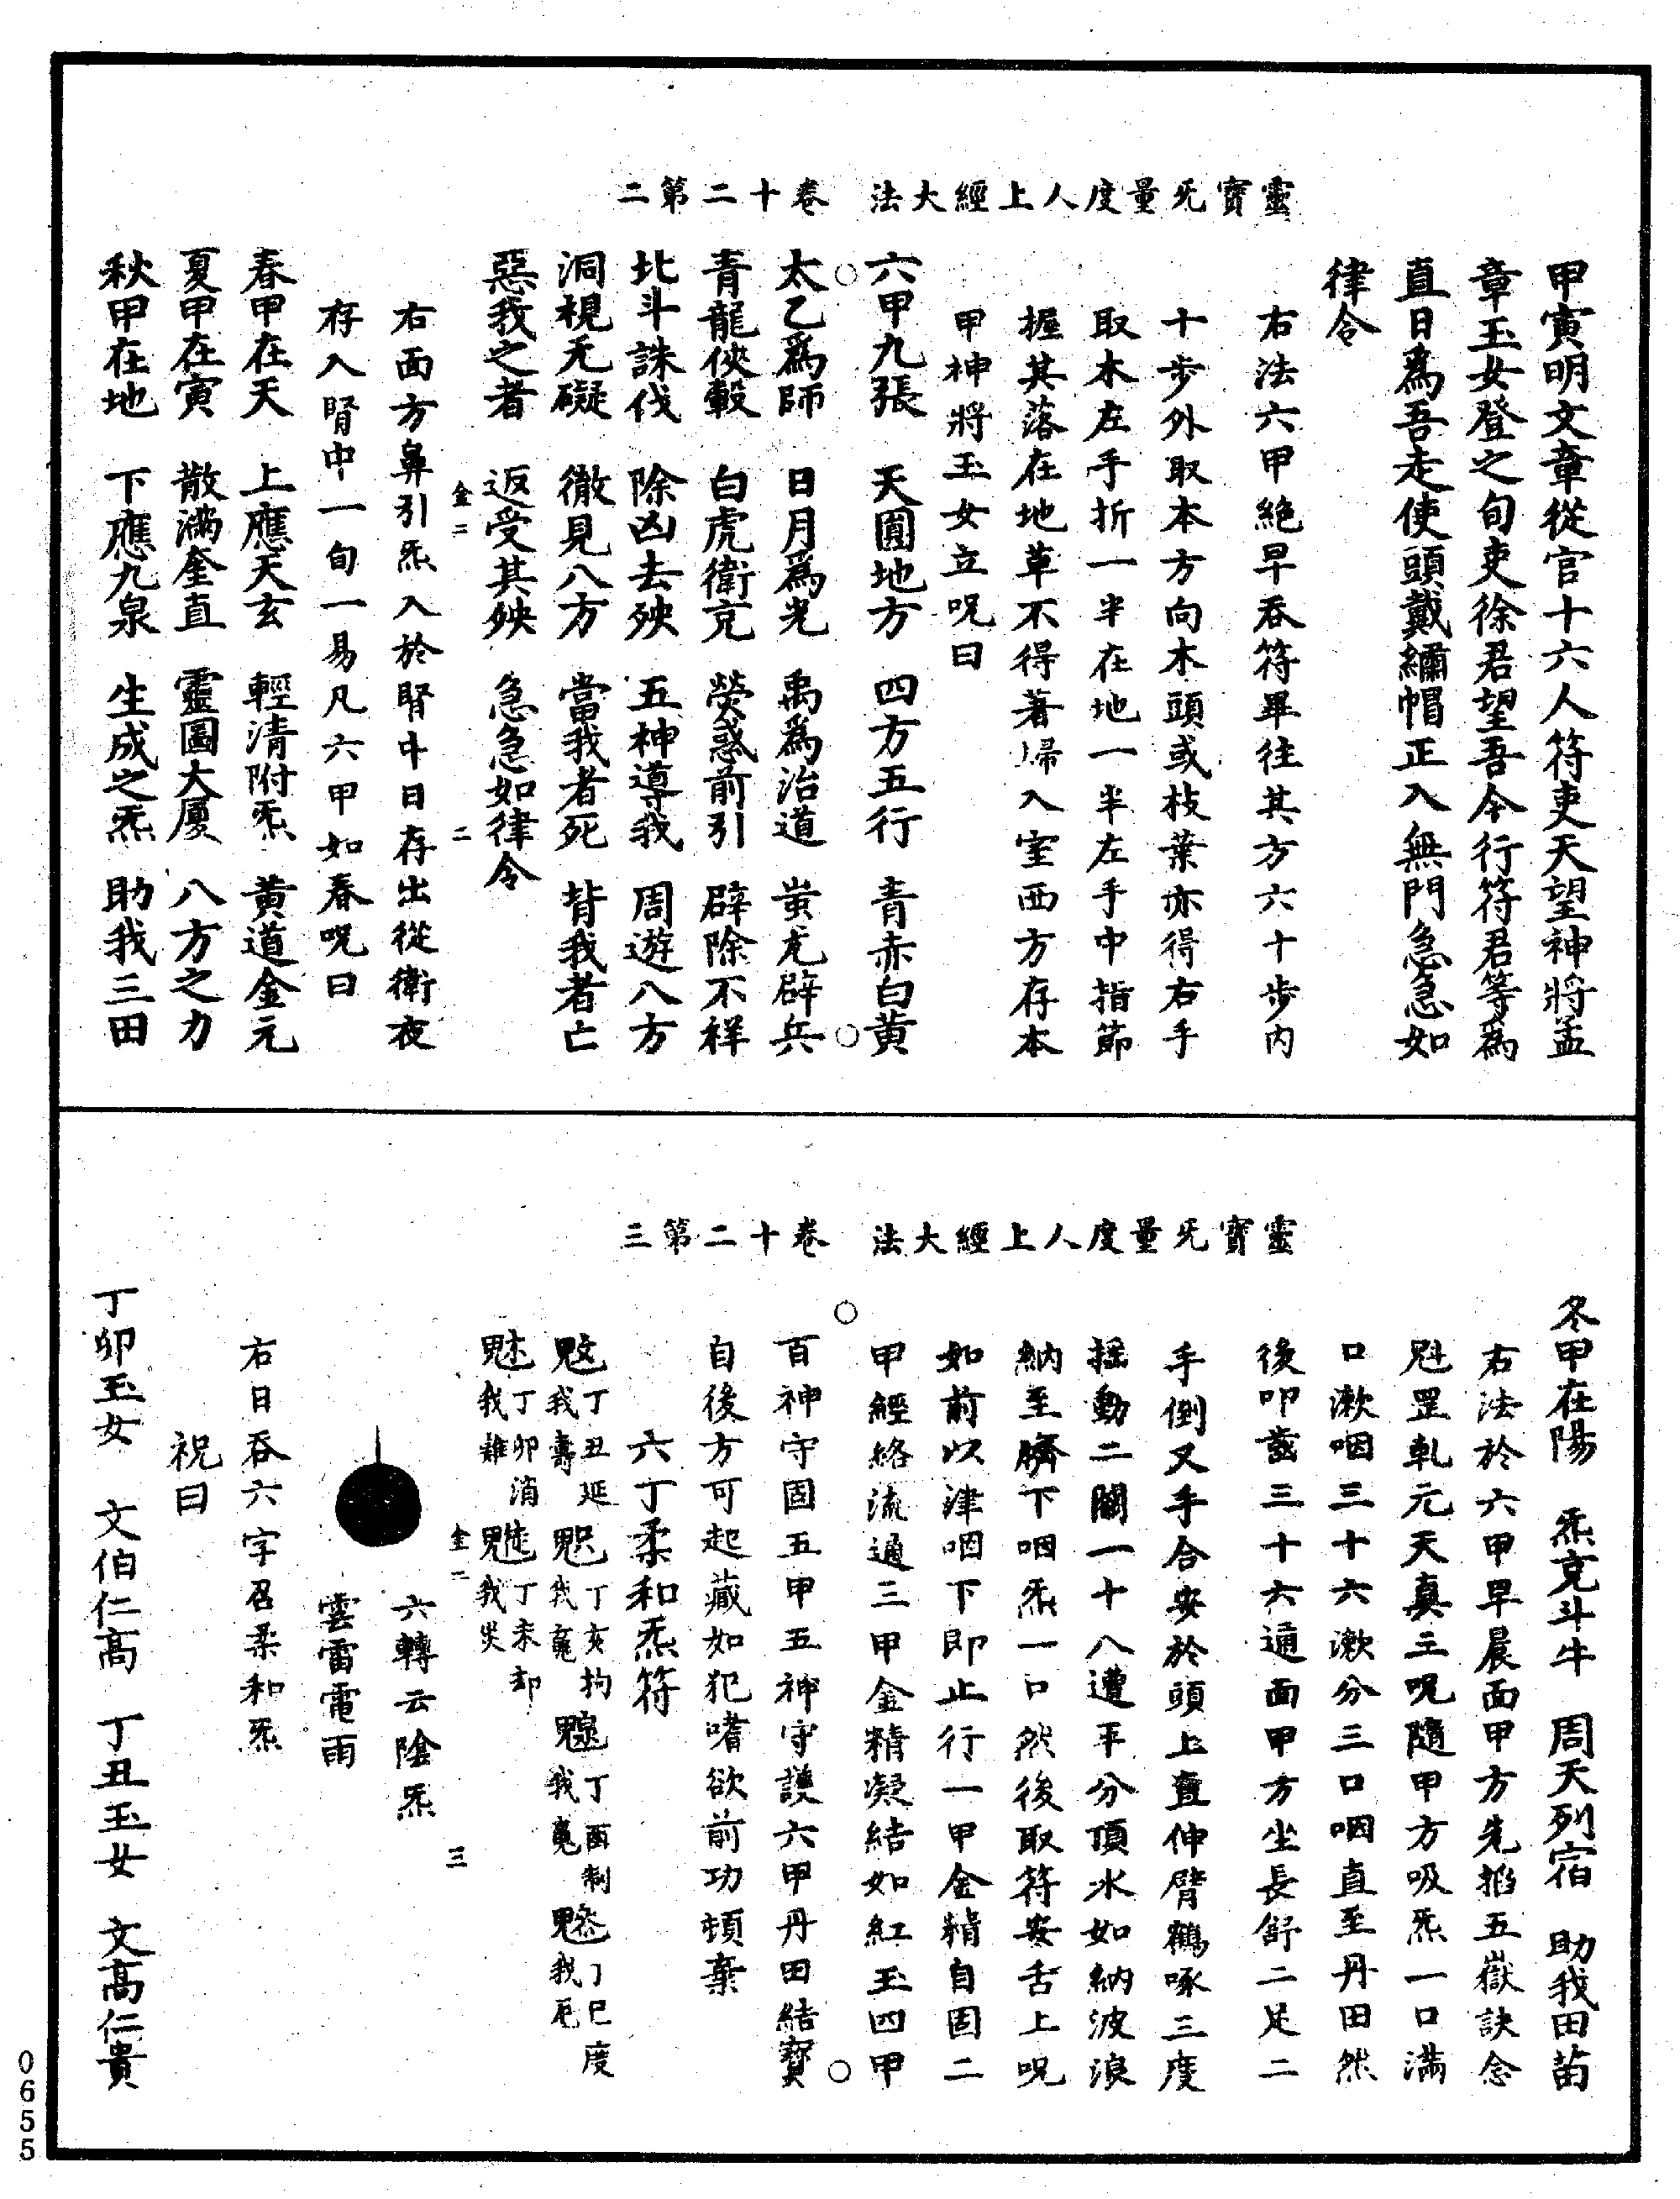 靈寳无量度人上經大法　卷十二第二
甲寅明文章從官十六人符吏天望神將孟
章玉女登之旬吏徐君望吾今行符君等為
直日爲吾走使頭戴繡帽正入無門急急如
律令
右法六甲絶早吞符畢往其方六十步内
十步外取本方向木頭或枝葉亦得右手
取木左手折一半在地一半左手中指節
握其落在地草不得著歸入室西方存本
甲神將玉女立呪曰
六甲九張　天圓地方　四方五行　青赤白黄
太乙爲師　日月爲光　禹爲治道　蚩尤辟兵
青龍俠轂　白虎衛克　熒惑前引　辟除不祥
北斗誅伐　除凶去殃　五神導我　周遊八方
洞視无礙　徹見八方　當我者死　背我者亡
惡我之者　返受其殃　急急如律令
金二　二
右面方鼻引炁入於腎中日存出從衛夜
存入腎中一旬一易凡六甲如春呪曰
春甲在天　上應天玄　輕清附炁　黄道金元
夏甲在寅　散滿奎直　靈圖大厦　八方之力
秋甲在地　下應九泉　生成之炁　助我三田
靈寳无量度人上經大法　卷十二第三
冬甲在陽　炁克斗牛　周天列宿　助我田苗
右法於六甲早晨面甲方先掐五嶽訣念
魁罡軋元天真三呪隨甲方吸炁一口滿
口漱咽三十六漱分三口咽直至丹田然
後叩齒三十六通面甲方坐長舒二足二
手倒叉手合安於頭上直伸臂鶴啄三度
揺動二關一十八遭平分頂水如納波浪
納至臍下咽炁一口然後取符安舌上呪
如前以津咽下即止行一甲金精自固二
甲經絡流通三甲金精凝結如紅玉四甲
百神守固五甲五神守護六甲丹田結寳
自後方可起藏如犯嗜欲前功頓棄
六丁柔和炁符
丁丑延我壽　丁亥拘我䰟　丁酉制我魄　丁巳度我厄
丁卯消我難　丁未却我災
金二　三
六轉云陰炁
雲雷電雨
右日吞六字召柔和炁
祝曰
丁卯玉女　文伯仁髙　丁丑玉女　文髙仁貴
0655